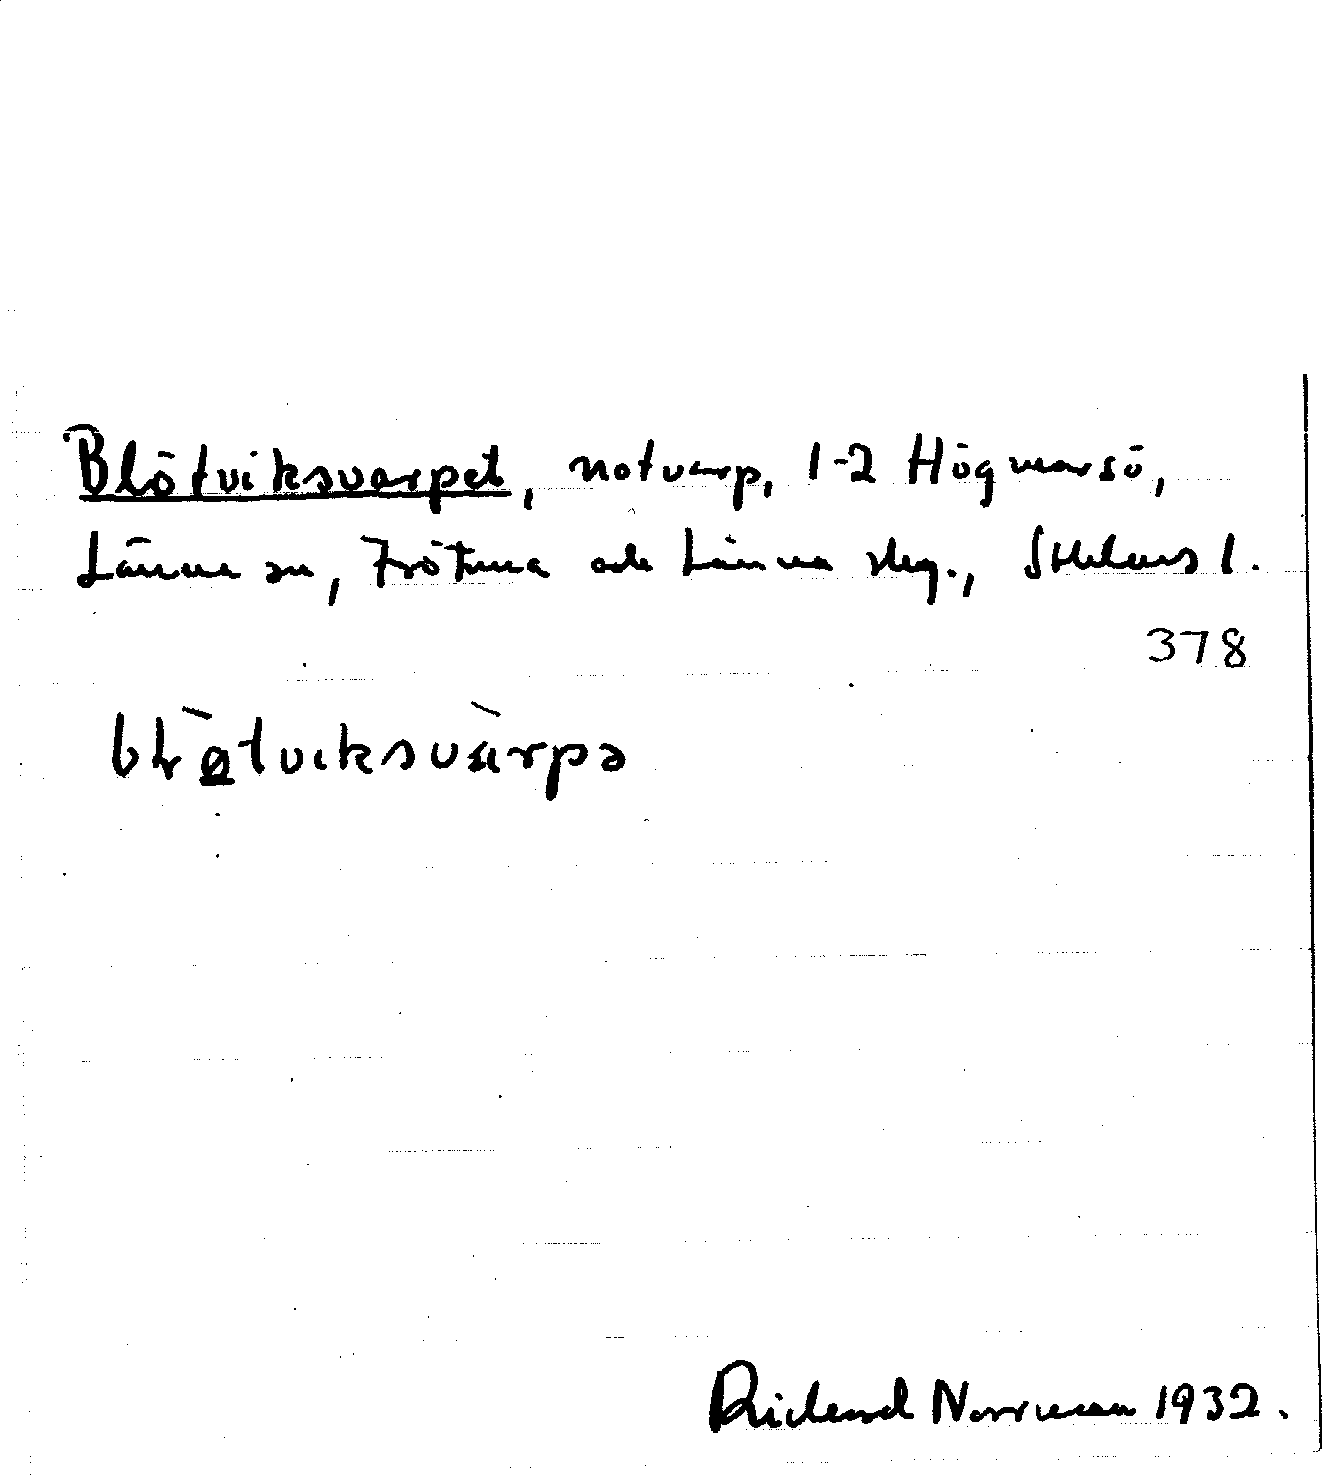 Blötviksvarpet, notvarp, 1-2 Högmarsö,
Länna sn, Frötuna och Länna skg., Sthlms l.
378
bløtviksvàrpə
Rickard Norrman 1932.